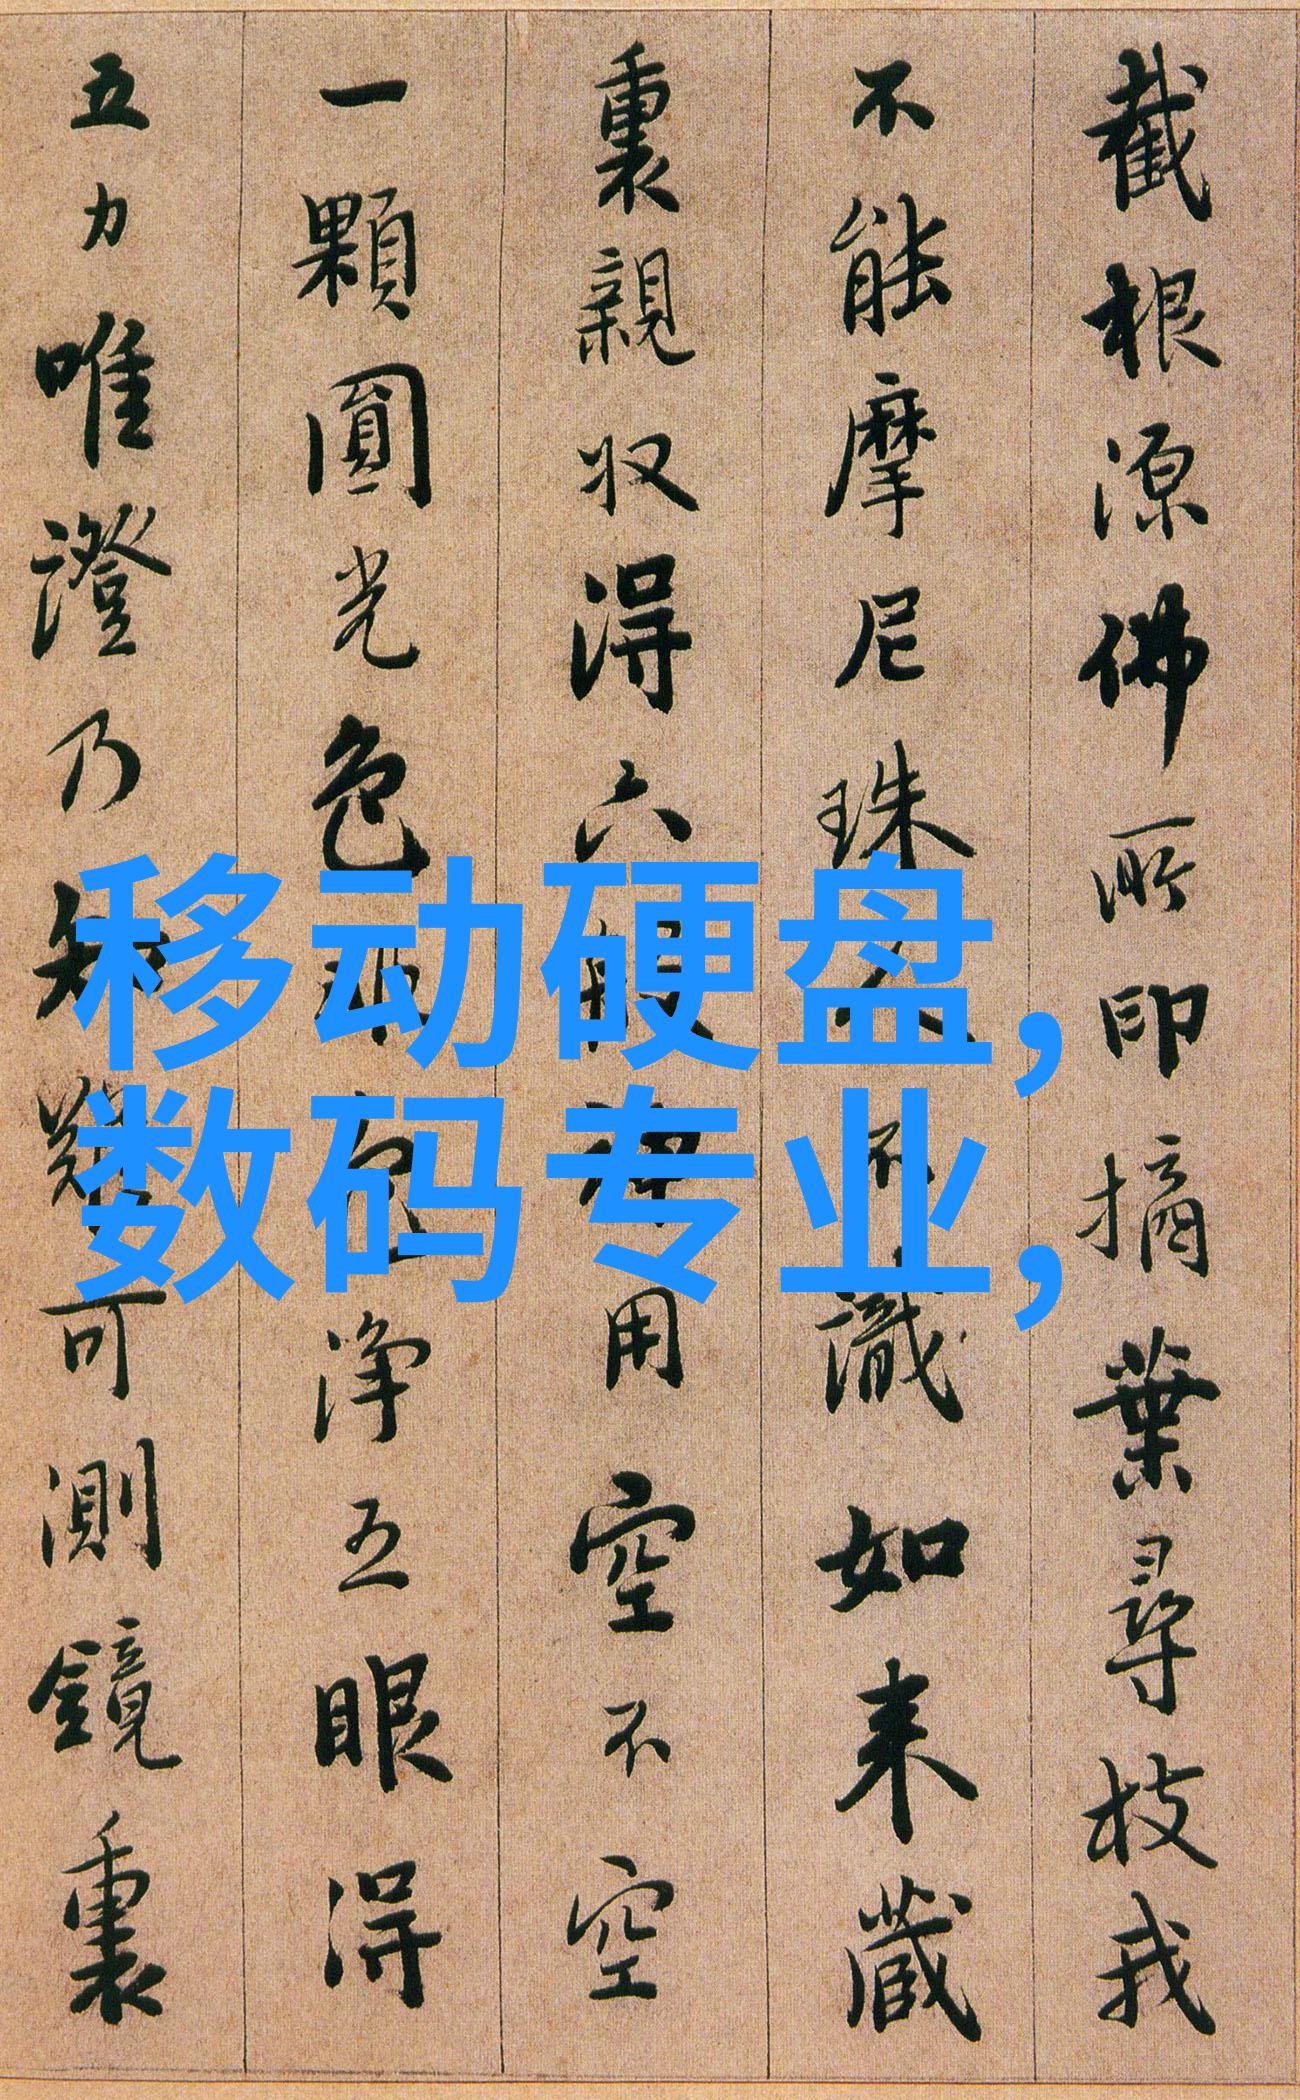 截根源佛所印摘葉尋枝我
不能摩尼珠人不識如来藏
裏親収得六般神用空不空
一顆圓光色非色淨五眼得
五力唯證乃知難可測鏡裏
移动硬盘,
数码专业,